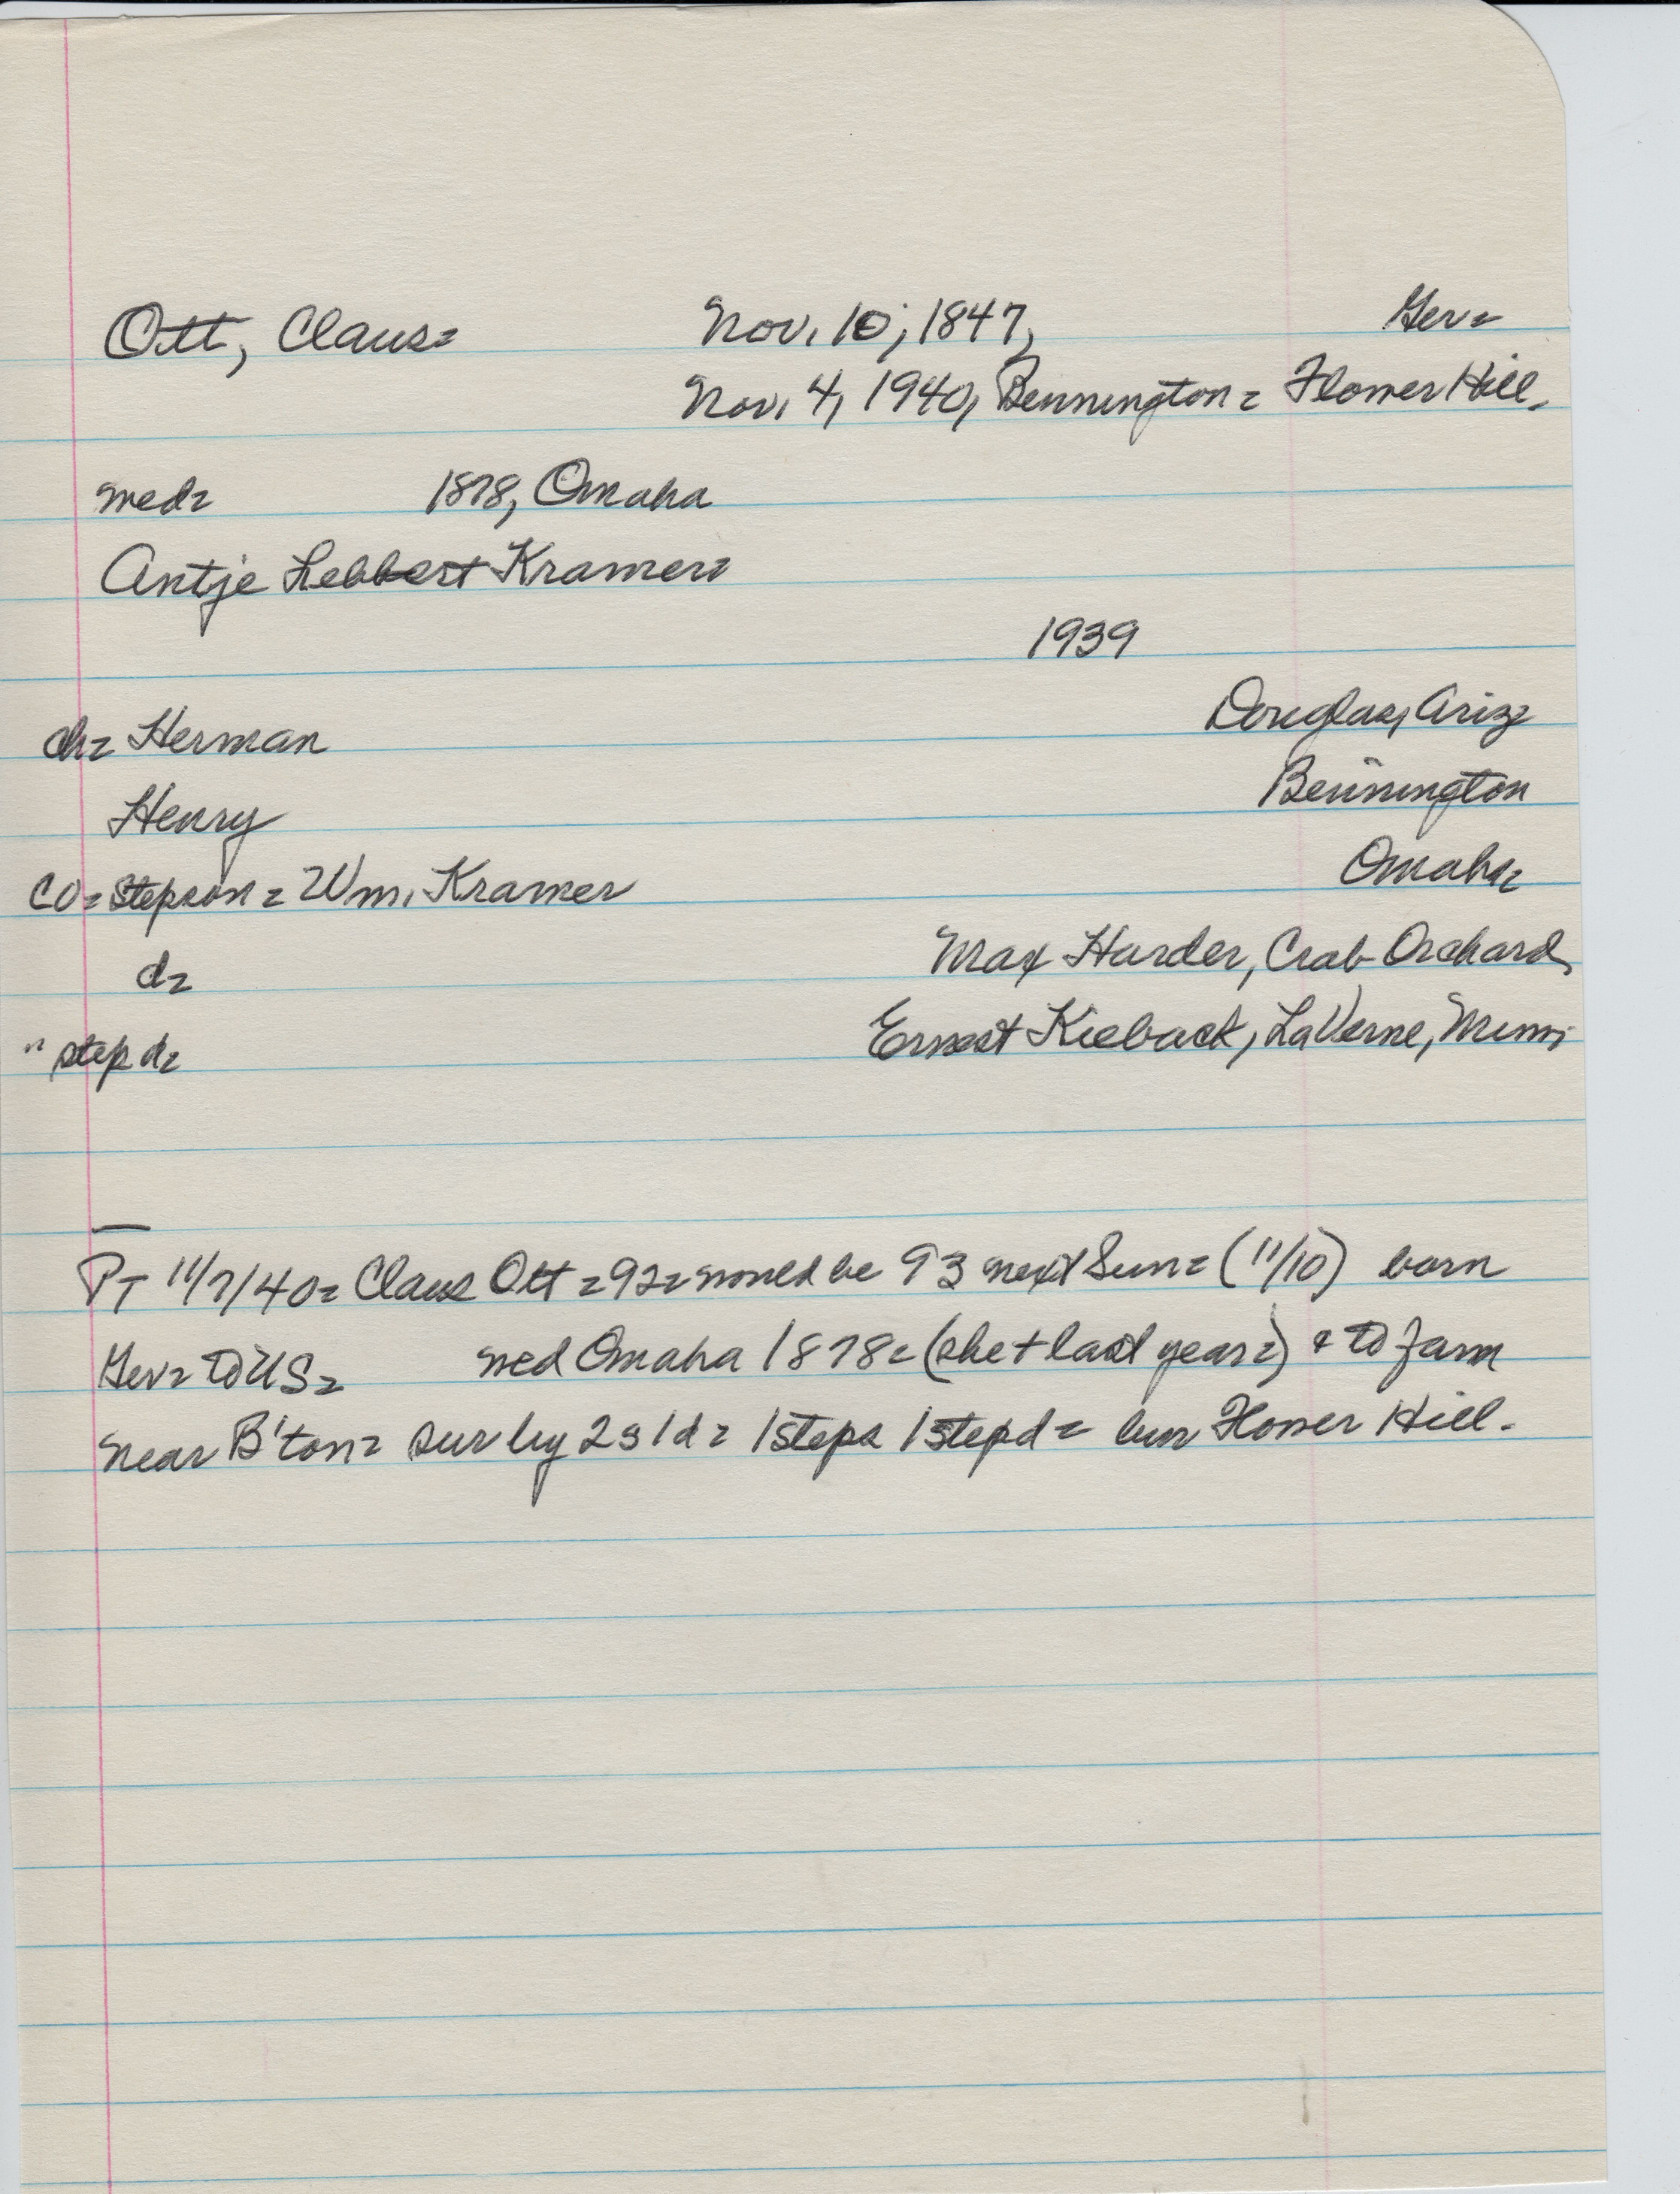 Ott, Claus= Nov. 10, 1847, Ger=
Nov. 4, 1940, Bennington= Flower Hill.
med= 1878, Omaha
Antje Lebbert Kramer=
1939
ch= Herman Douglas, Ariz=
Henry Bennington
CO= stepson= Wm. Kramer Omaha=
d= Max Harder, Crab Orchard,
" step d= Ernest Kieback, LaVerne, Minn.
PT 11/7/40= Claus Ott =92= would be 93 next Sun= (11/10) born
Ger= to US= med Omaha 1878= (she + last year=) & to farm
near B'ton= sur by 2s 1d= 1 steps 1 stepd= bur Flower Hill.